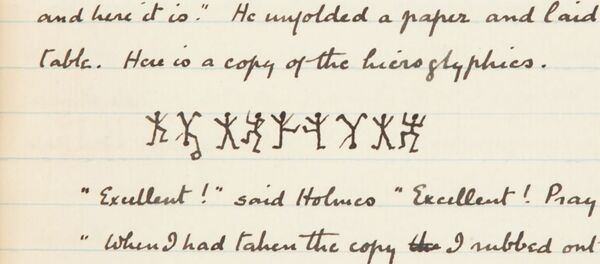 and here it is." He unfolded a paper and laid
table. Here is a copy of the hieroglyphics.
"Excellent!" said Holmes "Excellent! Pray
"When I had taken the copy the I rubbed out